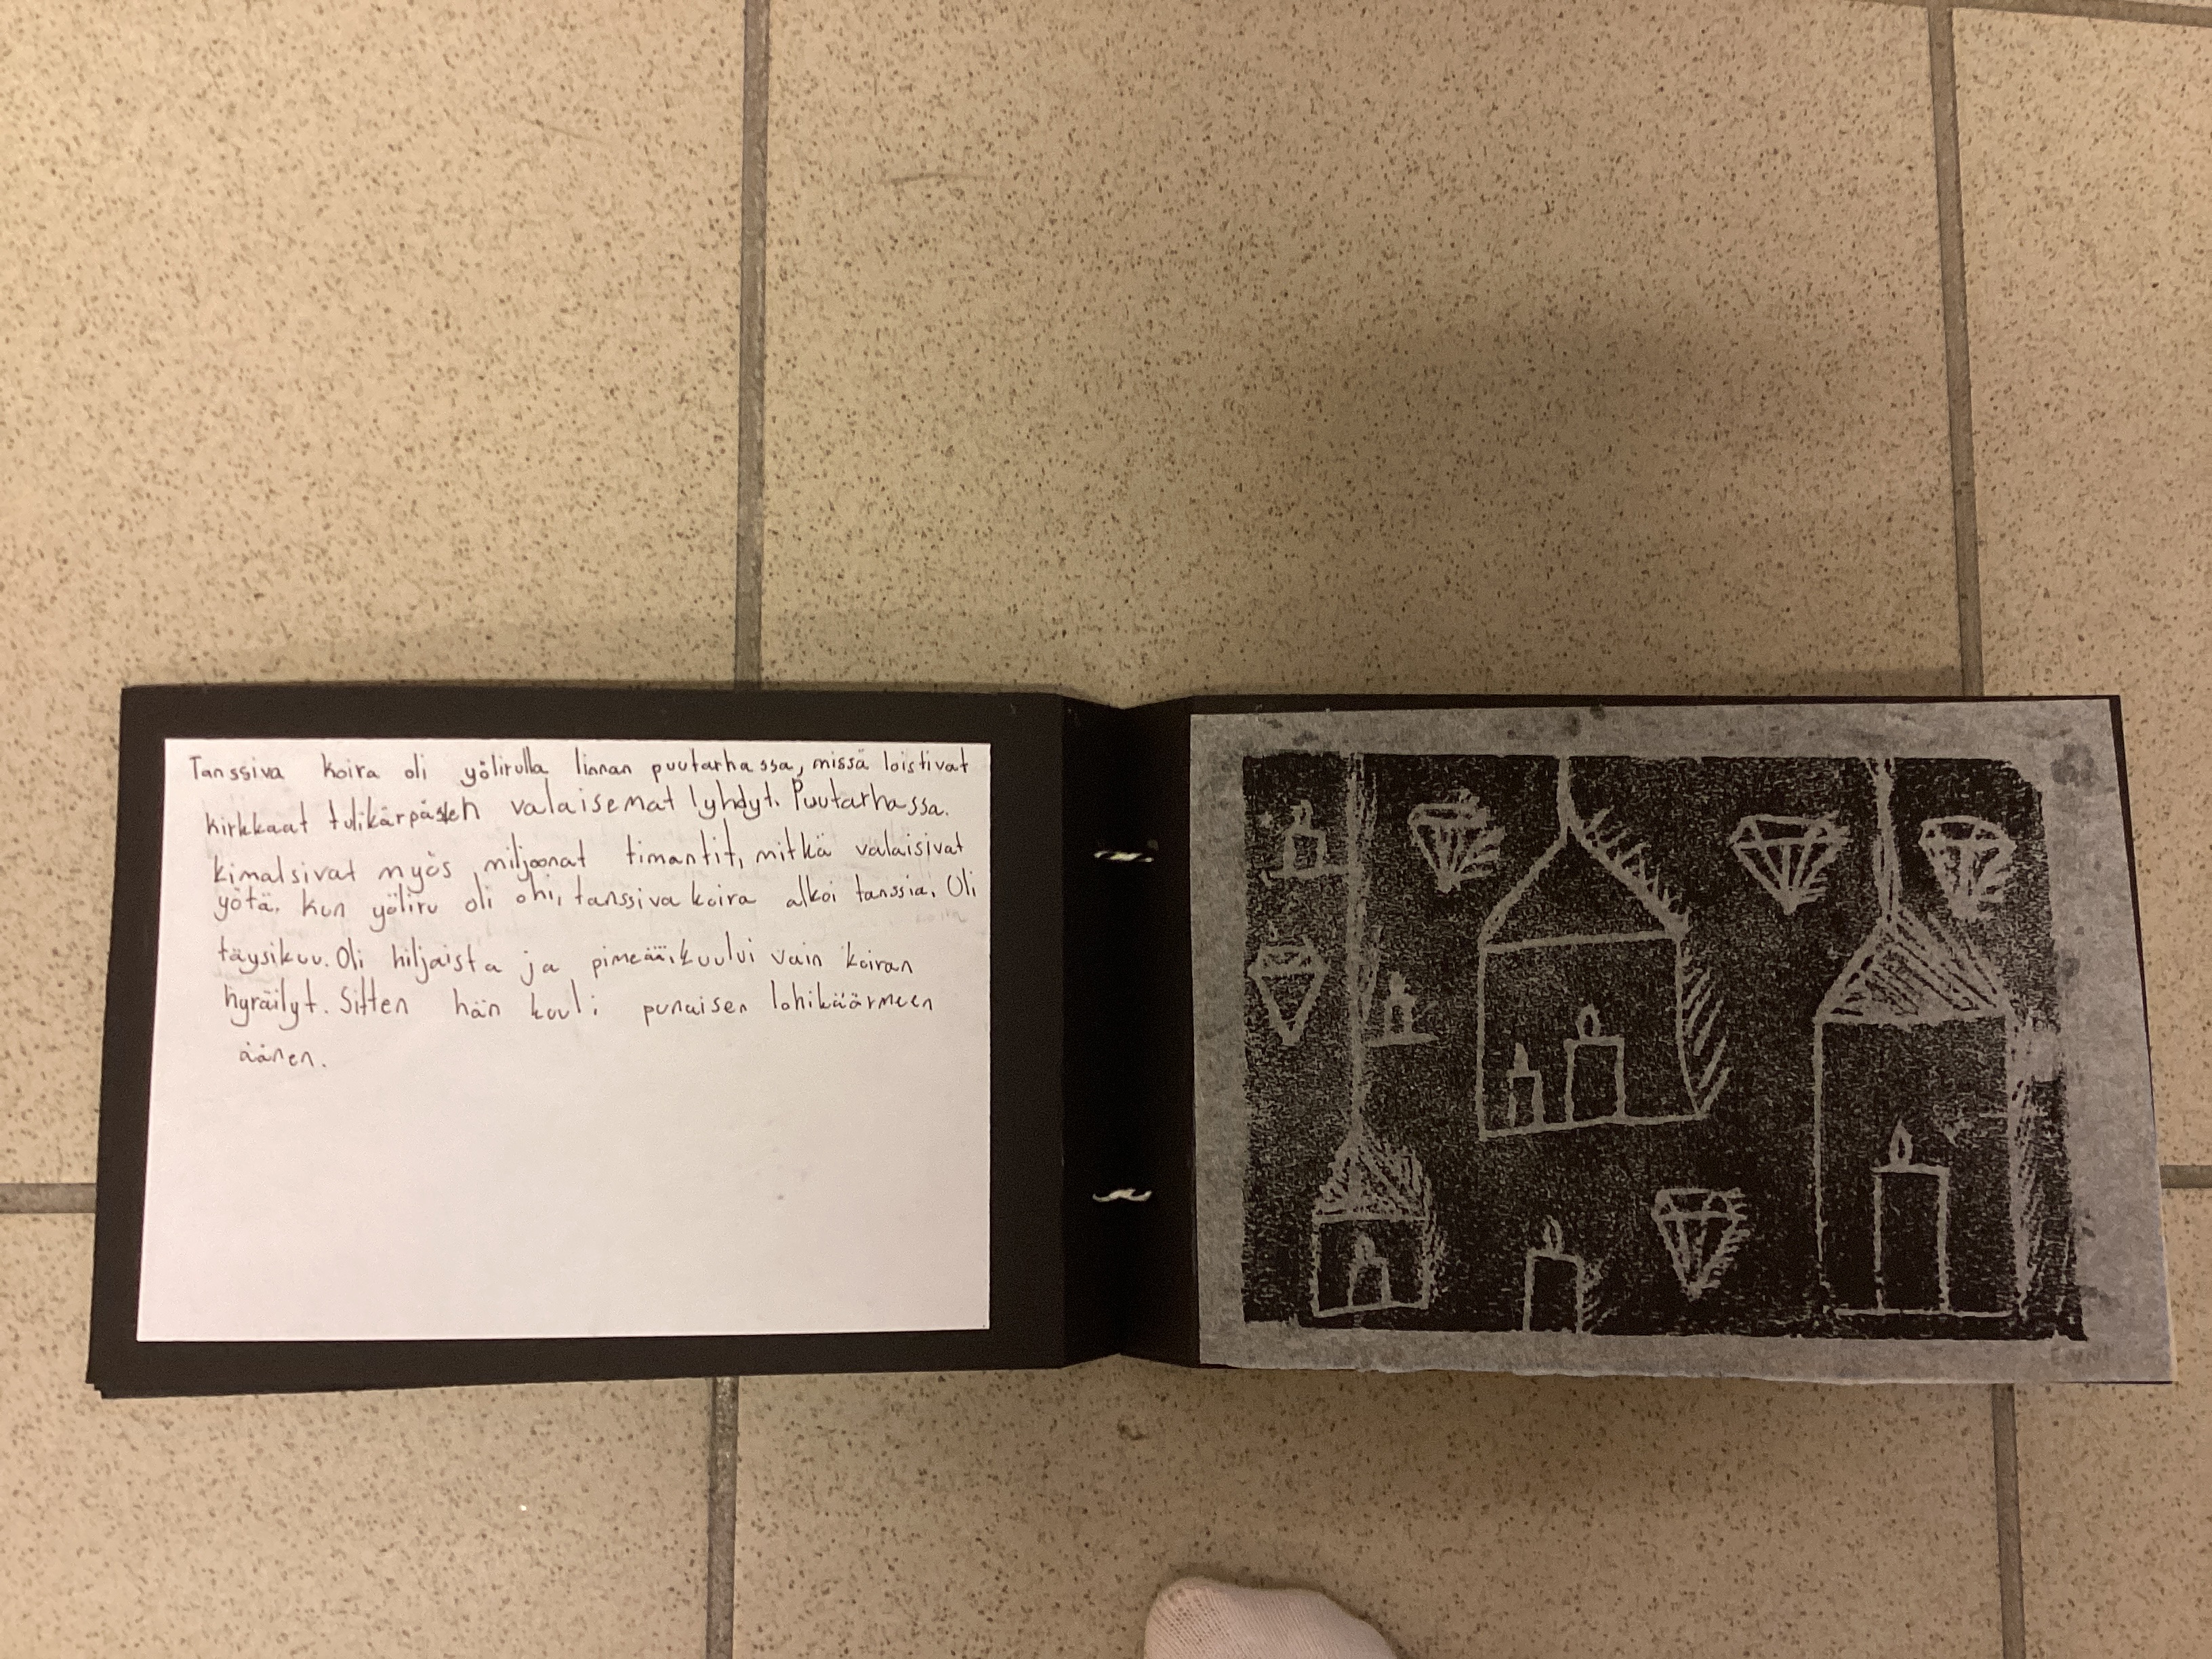 Tanssiva koira oli yölirulla linnan puutarhassa, missä loistivat
kirkkaat tulikärpästen valaisemat lyhdyt. Puutarhassa.
kimalsivat myös miljoonat timantit, mitkä valaisivat
yötä. Kun yöliru oli ohi, tanssiva koira alkoi tanssia. Oli
koira
täysikuu. Oli hiljaista ja pimeää. kuului vain koiran
hyräilyt. Sitten hän kuuli punaisen lohikäärmeen
äänen.
ENNI